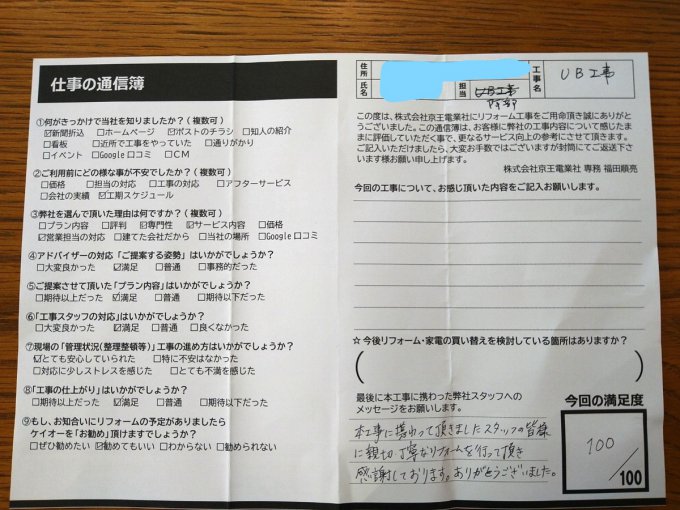 仕事の通信簿
①何がきっかけで当社を知りましたか？(複数可)
☑新聞折込 □ホームページ ☑ポストのチラシ □知人の紹介
□看板 □近所で工事をやっていた □通りがかり
□イベント □Google口コミ □CM
②ご利用前にどの様な事が不安でしたか？(複数可)
□価格 □担当の対応 □工事の対応 □アフターサービス
□会社の実績 ☑工期スケジュール
③弊社を選んで頂いた理由は何ですか？(複数可)
□プラン内容 □評判 ☑専門性 ☑サービス内容 □価格
☑営業担当の対応 □建てた会社だから □当社の場所 □Google口コミ
④アドバイザーの対応「ご提案する姿勢」はいかがでしょうか？
□大変良かった ☑満足 □普通 □事務的だった
⑤ご提案させて頂いた「プラン内容」はいかがでしょうか？
□期待以上だった ☑満足 □普通 □期待以下だった
⑥「工事スタッフの対応」はいかがでしょうか？
□大変良かった ☑満足 □普通 □良くなかった
⑦現場の「管理状況(整理整頓等)」工事の進め方はいかがでしょうか？
☑とても安心していられた □特に不安はなかった
□対応に少しストレスを感じた □とても不満を感じた
⑧「工事の仕上がり」はいかがでしょうか？
□期待以上だった ☑満足 □普通 □期待以下だった
⑨もし、お知合いにリフォームの予定がありましたら
ケイオーを「お勧め」頂けますでしょうか？
□ぜひ勧めたい ☑勧めてもいい □わからない □勧められない
住所
氏名
担当
UB工事
阿部
工事名
UB工事
この度は、株式会社京王電業社にリフォーム工事をご用命頂き誠にありがとう
ございました。この通信簿は、お客様に弊社の工事内容について感じたまま
に評価していただく事で、更なるサービス向上の参考にさせて頂きます。
ご記入いただけましたら、大変お手数ではございますが封筒にてご返送下さいます
様お願い申し上げます。
株式会社京王電業社 専務 福田順亮
今回の工事について、お感じ頂いた内容をご記入お願いします。
☆今後リフォーム・家電の買い替えを検討している箇所はありますか？
( )
最後に本工事に携わった弊社スタッフへの
メッセージをお願いします。
本工事に携わって頂きましたスタッフの皆様
に親切、丁寧なリフォームを行って頂き
感謝しております。ありがとうございました。
今回の満足度
100
/100